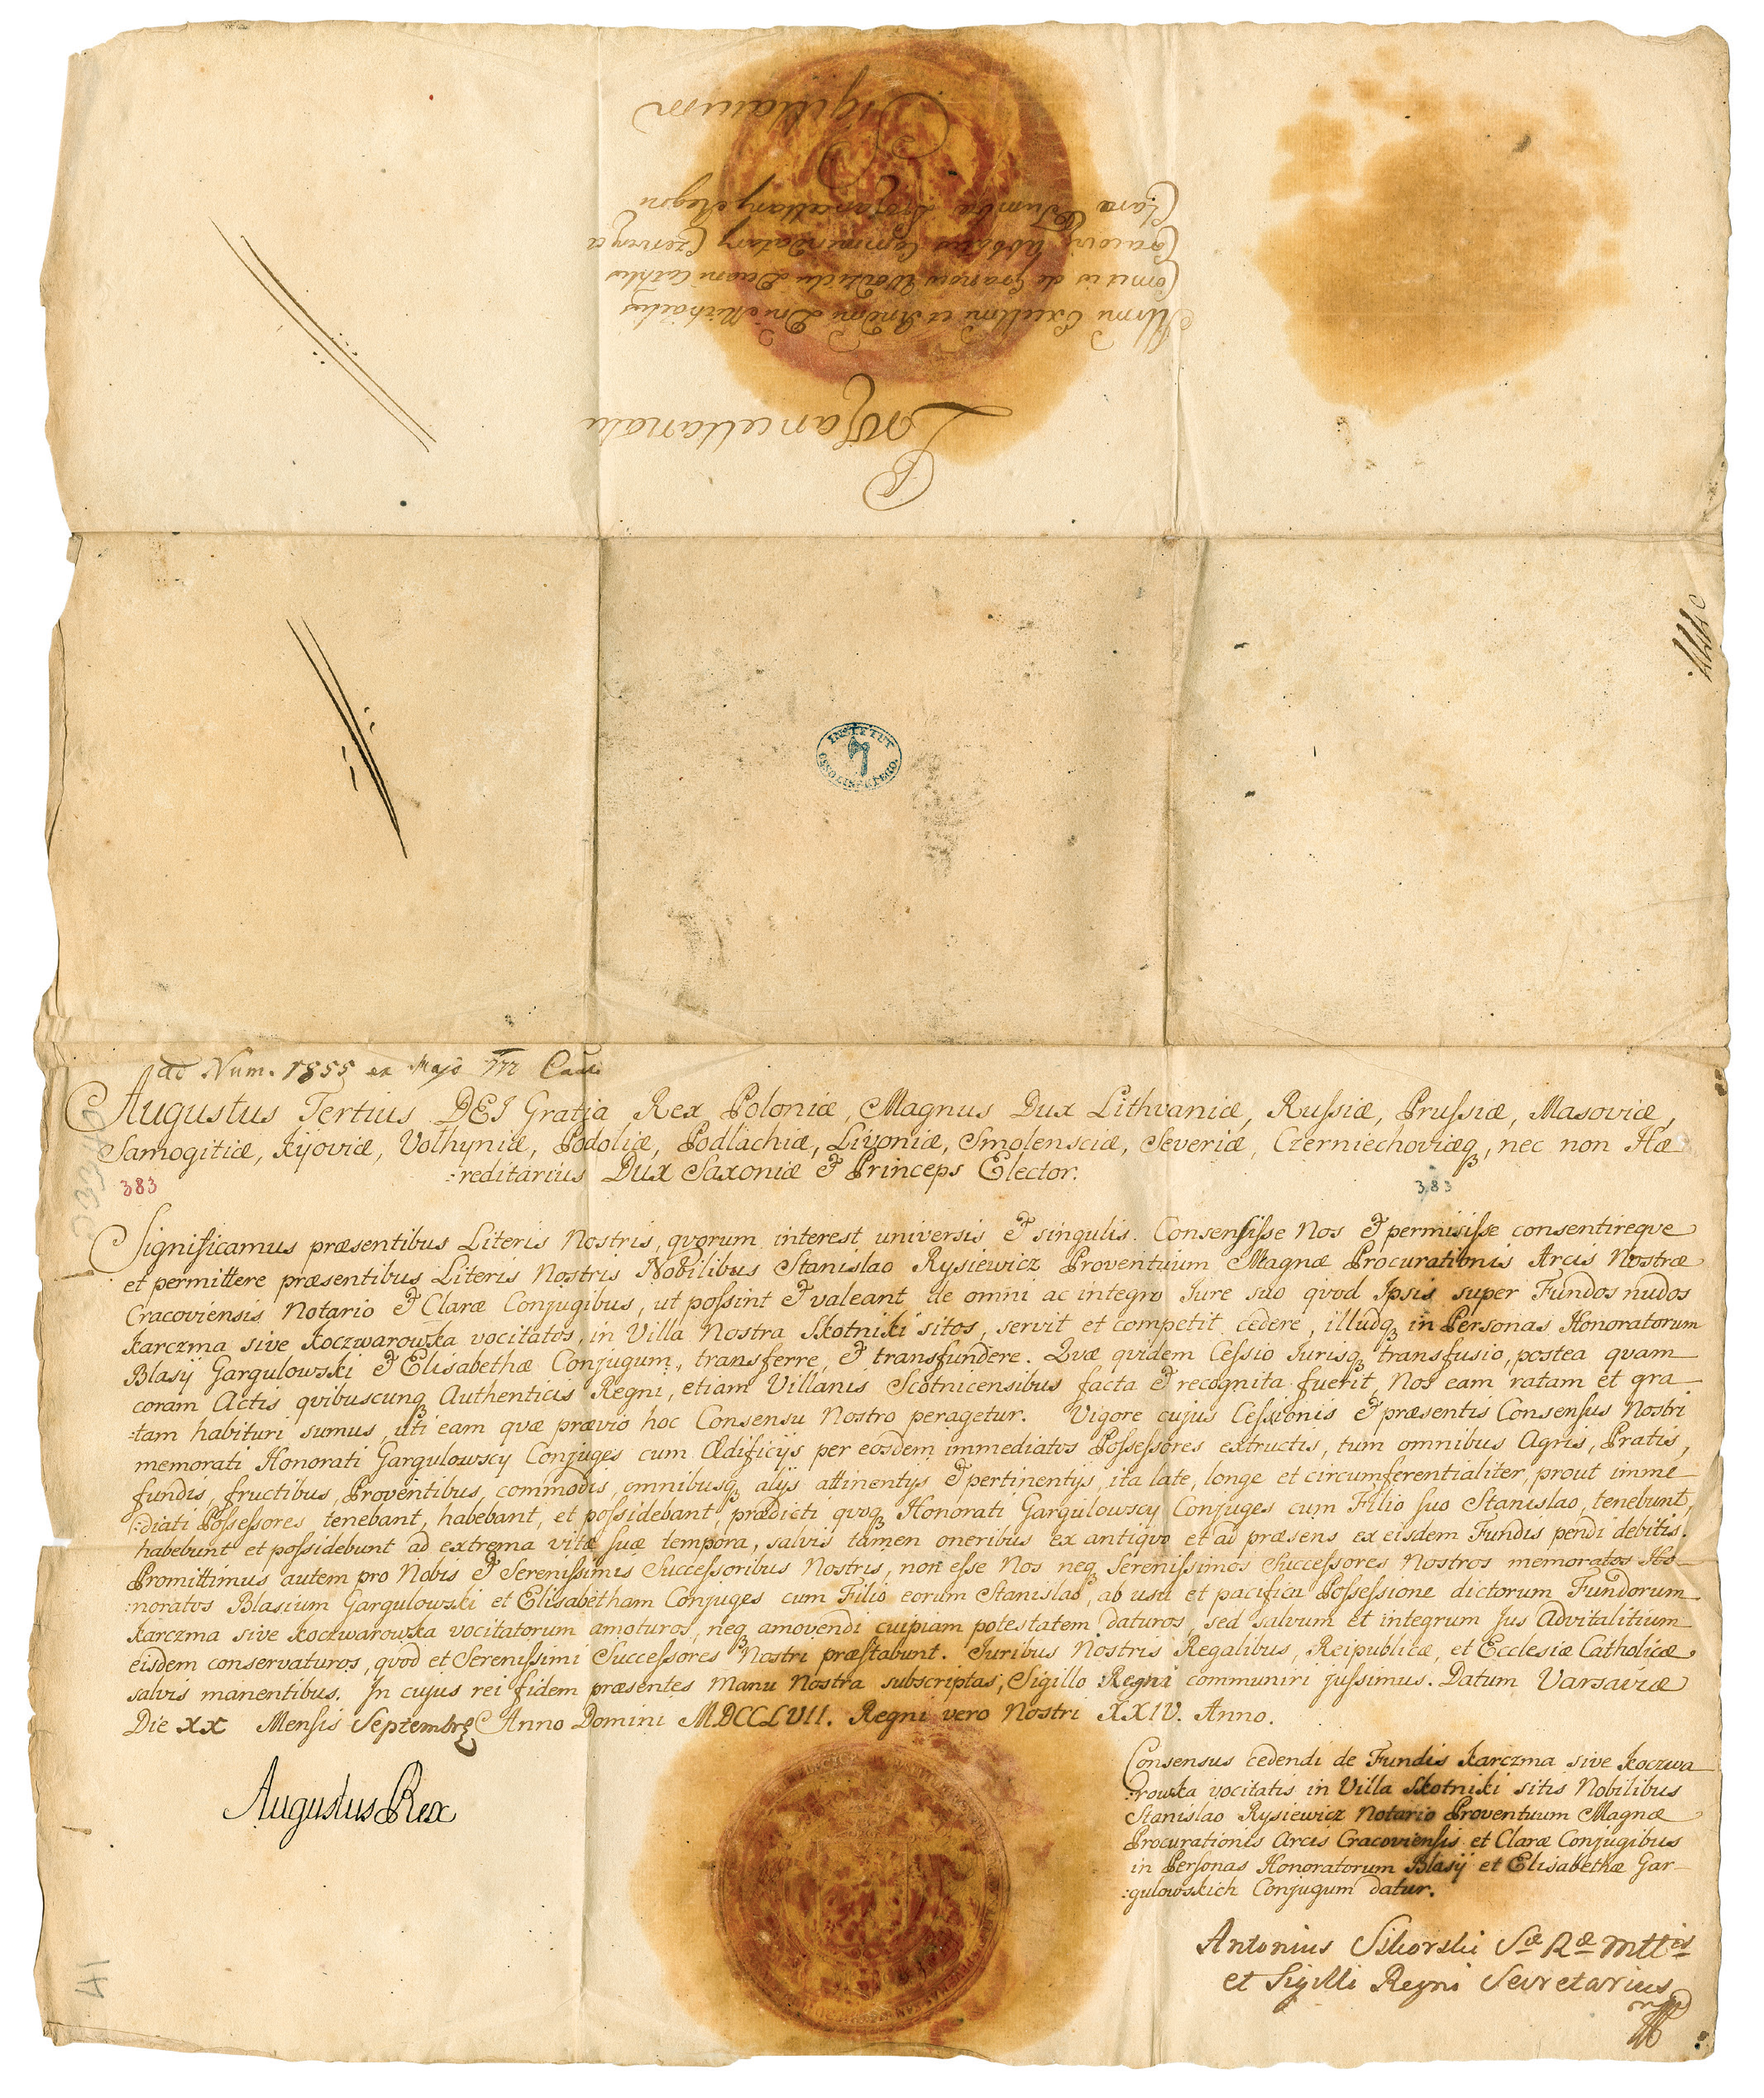 Procancellariatu
Illmi Excellmi et Rndmi Dni Michaelis
Comitis de Granow Wodzicki Decani Cathlis
Cracovi: Abbatis Commendatarij Czerwen et
Clara Tumba Procancellarij Regni
Sigillatum
INSTYTUT
OSSOLIŃSKIEGO
ad Num. 1855 ex Majo
Augustus Tertius DEI Gratja Rex Poloniæ, Magnus Dux Lithvaniæ, Russiæ, Prussiæ, Masoviæ,
Samogitiæ, Kijoviæ, Volhyniæ, Podoliæ, Podlachiæ, Livoniæ, Smolensciæ, Severiæ, Czerniechoviæq, nec non Hæ
:reditarius Dux Saxoniæ & Princeps Elector.
383
383
Significamus præsentibus Literis Nostris, qvorum interest universis & singulis. Consensisse Nos & permisisse consentireqve
et permittere præsentibus Literis Nostris Nobilibus Stanislao Rysiewicz Proventuum Magnæ Procurationis Arcis Nostræ
Cracoviensis Notario & Claræ Conjugibus, ut possint & valeant de omni ac integro Iure suo qvod Ipsis super Fundos nudos
Karczma sive Koczwarowska vocitatos, in Villa Nostra Skotniki sitos, servit et competit cedere, illudq in Personas Honoratorum
Blasij Gargulowski & Elisabethæ Conjugum, transferre, & transfundere. Qvæ qvidem Cessio Iurisq transfusio, postea qvam
coram Actis qvibuscunq Authenticis Regni, etiam Villanis Scotnicensibus facta & recognita fuerit, Nos eam ratam et gra
:tam habituri sumus, uti eam qvæ prævio hoc Consensu Nostro peragetur. Vigore cujus Cessionis & præsentis Consensus Nostri
memorati Honorati Gargulowscy Conjuges cum Ædificijs per eosdem immediatos Possessores extructis, tum omnibus Agris, Pratis,
fundis, fructibus, Proventibus, commodis, omnibusq alijs attinentijs & pertinentijs, ita late, longe et circumferentialiter, prout imme
:diati Possessores tenebant, habebant, et possidebant, prædicti qvoq Honorati Gargulowscy Conjuges cum Filio suo Stanislao, tenebunt,
habebunt et possidebunt ad extrema vitæ suæ tempora, salvis tamen oneribus ex antiqvo et ad præsens ex eisdem Fundis pendi debitis.
Promittimus autem pro Nobis & Serenissimis Successoribus Nostris, non esse Nos neq Serenissimos Successores Nostros memoratos Ho
:noratos Blasium Gargulowski et Elisabetham Conjuges cum Filio eorum Stanislao, ab usu et pacifica Possessione dictorum Fundorum
Karczma sive Koczwarowska vocitatorum amoturos, neq amovendi cuipiam potestatem daturos, sed salvum et integrum Jus Advitalitium
eisdem conservaturos, qvod et Serenissimi Successores Nostri præstabunt. Iuribus Nostris Regalibus, Reipublicæ, et Ecclesiæ Catholicæ
salvis manentibus. In cujus rei fidem præsentes Manu Nostra subscriptas, Sigillo Regni communiri jussimus. Datum Varsaviæ
Die XX Mensis Septembrs Anno Domini MDCCLVII. Regni vero Nostri XXIV. Anno.
Augustus Rex
Consensus cedendi de Fundis Karczma sive Koczwa
:rowska vocitatis in Villa Skotniki sitis Nobilibus
Stanislao Rysiewicz Notario Proventuum Magnæ
Procurationis Arcis Cracoviensis et Claræ Conjugibus
in Personas Honoratorum Blasij et Elisabethæ Gar
:gulowskich Conjugum datur.
Antonius Sikorski Sæ Ræ Mttis
et Sigilli Regni Secretarius
mp
41